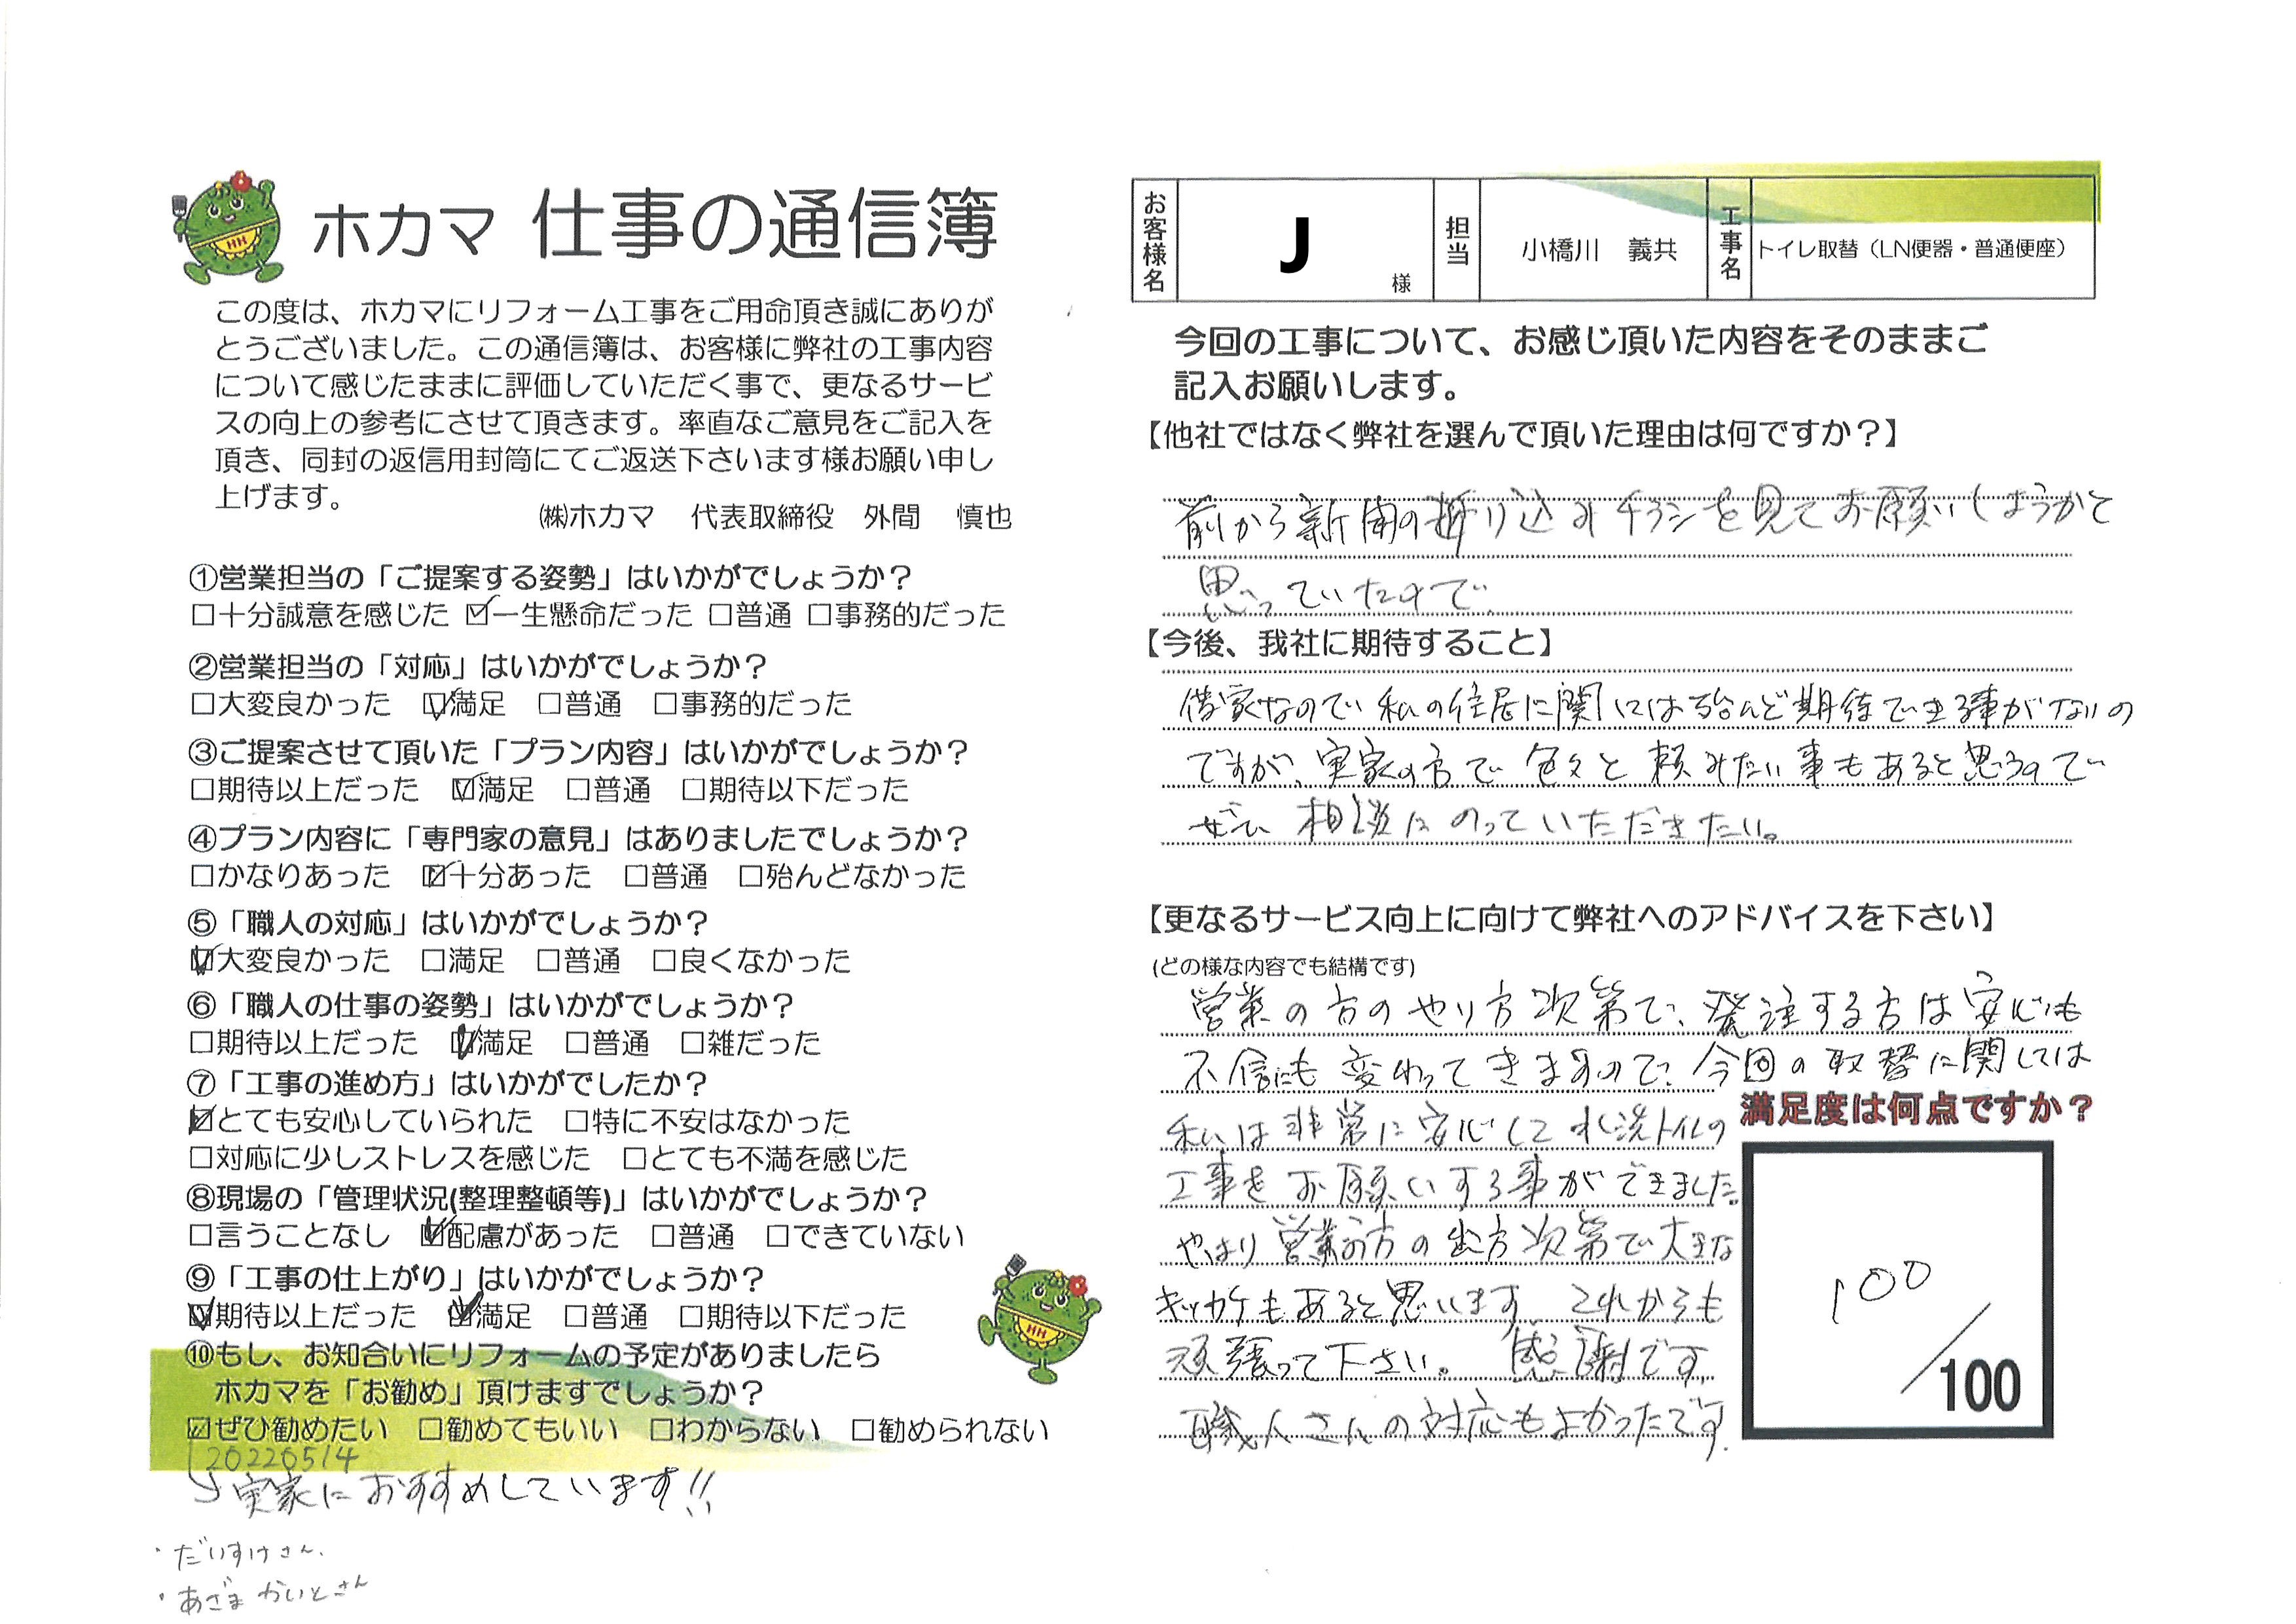 ホカマ 仕事の通信簿
この度は、ホカマにリフォーム工事をご用命頂き誠にありが
とうございました。この通信簿は、お客様に弊社の工事内容
について感じたままに評価していただく事で、更なるサービ
スの向上の参考にさせて頂きます。率直なご意見をご記入を
頂き、同封の返信用封筒にてご返送下さいます様お願い申し
上げます。
㈱ホカマ 代表取締役 外間 慎也
①営業担当の「ご提案する姿勢」はいかがでしょうか？
□十分誠意を感じた ☑一生懸命だった □普通 □事務的だった
②営業担当の「対応」はいかがでしょうか？
□大変良かった ☑満足 □普通 □事務的だった
③ご提案させて頂いた「プラン内容」はいかがでしょうか？
□期待以上だった ☑満足 □普通 □期待以下だった
④プラン内容に「専門家の意見」はありましたでしょうか？
□かなりあった ☑十分あった □普通 □殆んどなかった
⑤「職人の対応」はいかがでしょうか？
☑大変良かった □満足 □普通 □良くなかった
⑥「職人の仕事の姿勢」はいかがでしょうか？
□期待以上だった ☑満足 □普通 □雑だった
⑦「工事の進め方」はいかがでしたか？
☑とても安心していられた □特に不安はなかった
□対応に少しストレスを感じた □とても不満を感じた
⑧現場の「管理状況(整理整頓等)」はいかがでしょうか？
□言うことなし ☑配慮があった □普通 □できていない
⑨「工事の仕上がり」はいかがでしょうか？
☑期待以上だった ☑満足 □普通 □期待以下だった
⑩もし、お知合いにリフォームの予定がありましたら
ホカマを「お勧め」頂けますでしょうか？
☑ぜひ勧めたい □勧めてもいい □わからない □勧められない
20220514
実家におすすめしています!!
・だいすけさん、
・あざまかいとさん
お客様名 J 様 担当 小橋川 義共 工事名 トイレ取替（LN便器・普通便座）
今回の工事について、お感じ頂いた内容をそのままご
記入お願いします。
【他社ではなく弊社を選んで頂いた理由は何ですか？】
前から新聞の折り込みチラシを見てお願いしようかと
思っていたので
【今後、我社に期待すること】
借家なので私の住居に関しては殆んど期待できる事がないの
ですが、実家の方で色々と頼みたい事もあると思うので
ぜひ相談にのっていただきたい。
【更なるサービス向上に向けて弊社へのアドバイスを下さい】
(どの様な内容でも結構です)
営業の方のやり方次第で、発注する方は安心も
不信にも変わってきますので、今回の取替に関しては
私は非常に安心して水洗トイレの
工事をお願いする事ができました。
やはり営業の方の出方次第で大きな
キッカケもあると思います。これからも
頑張って下さい。 感謝です。
職人さんの対応もよかったです。
満足度は何点ですか？
100
/100
HH
HH